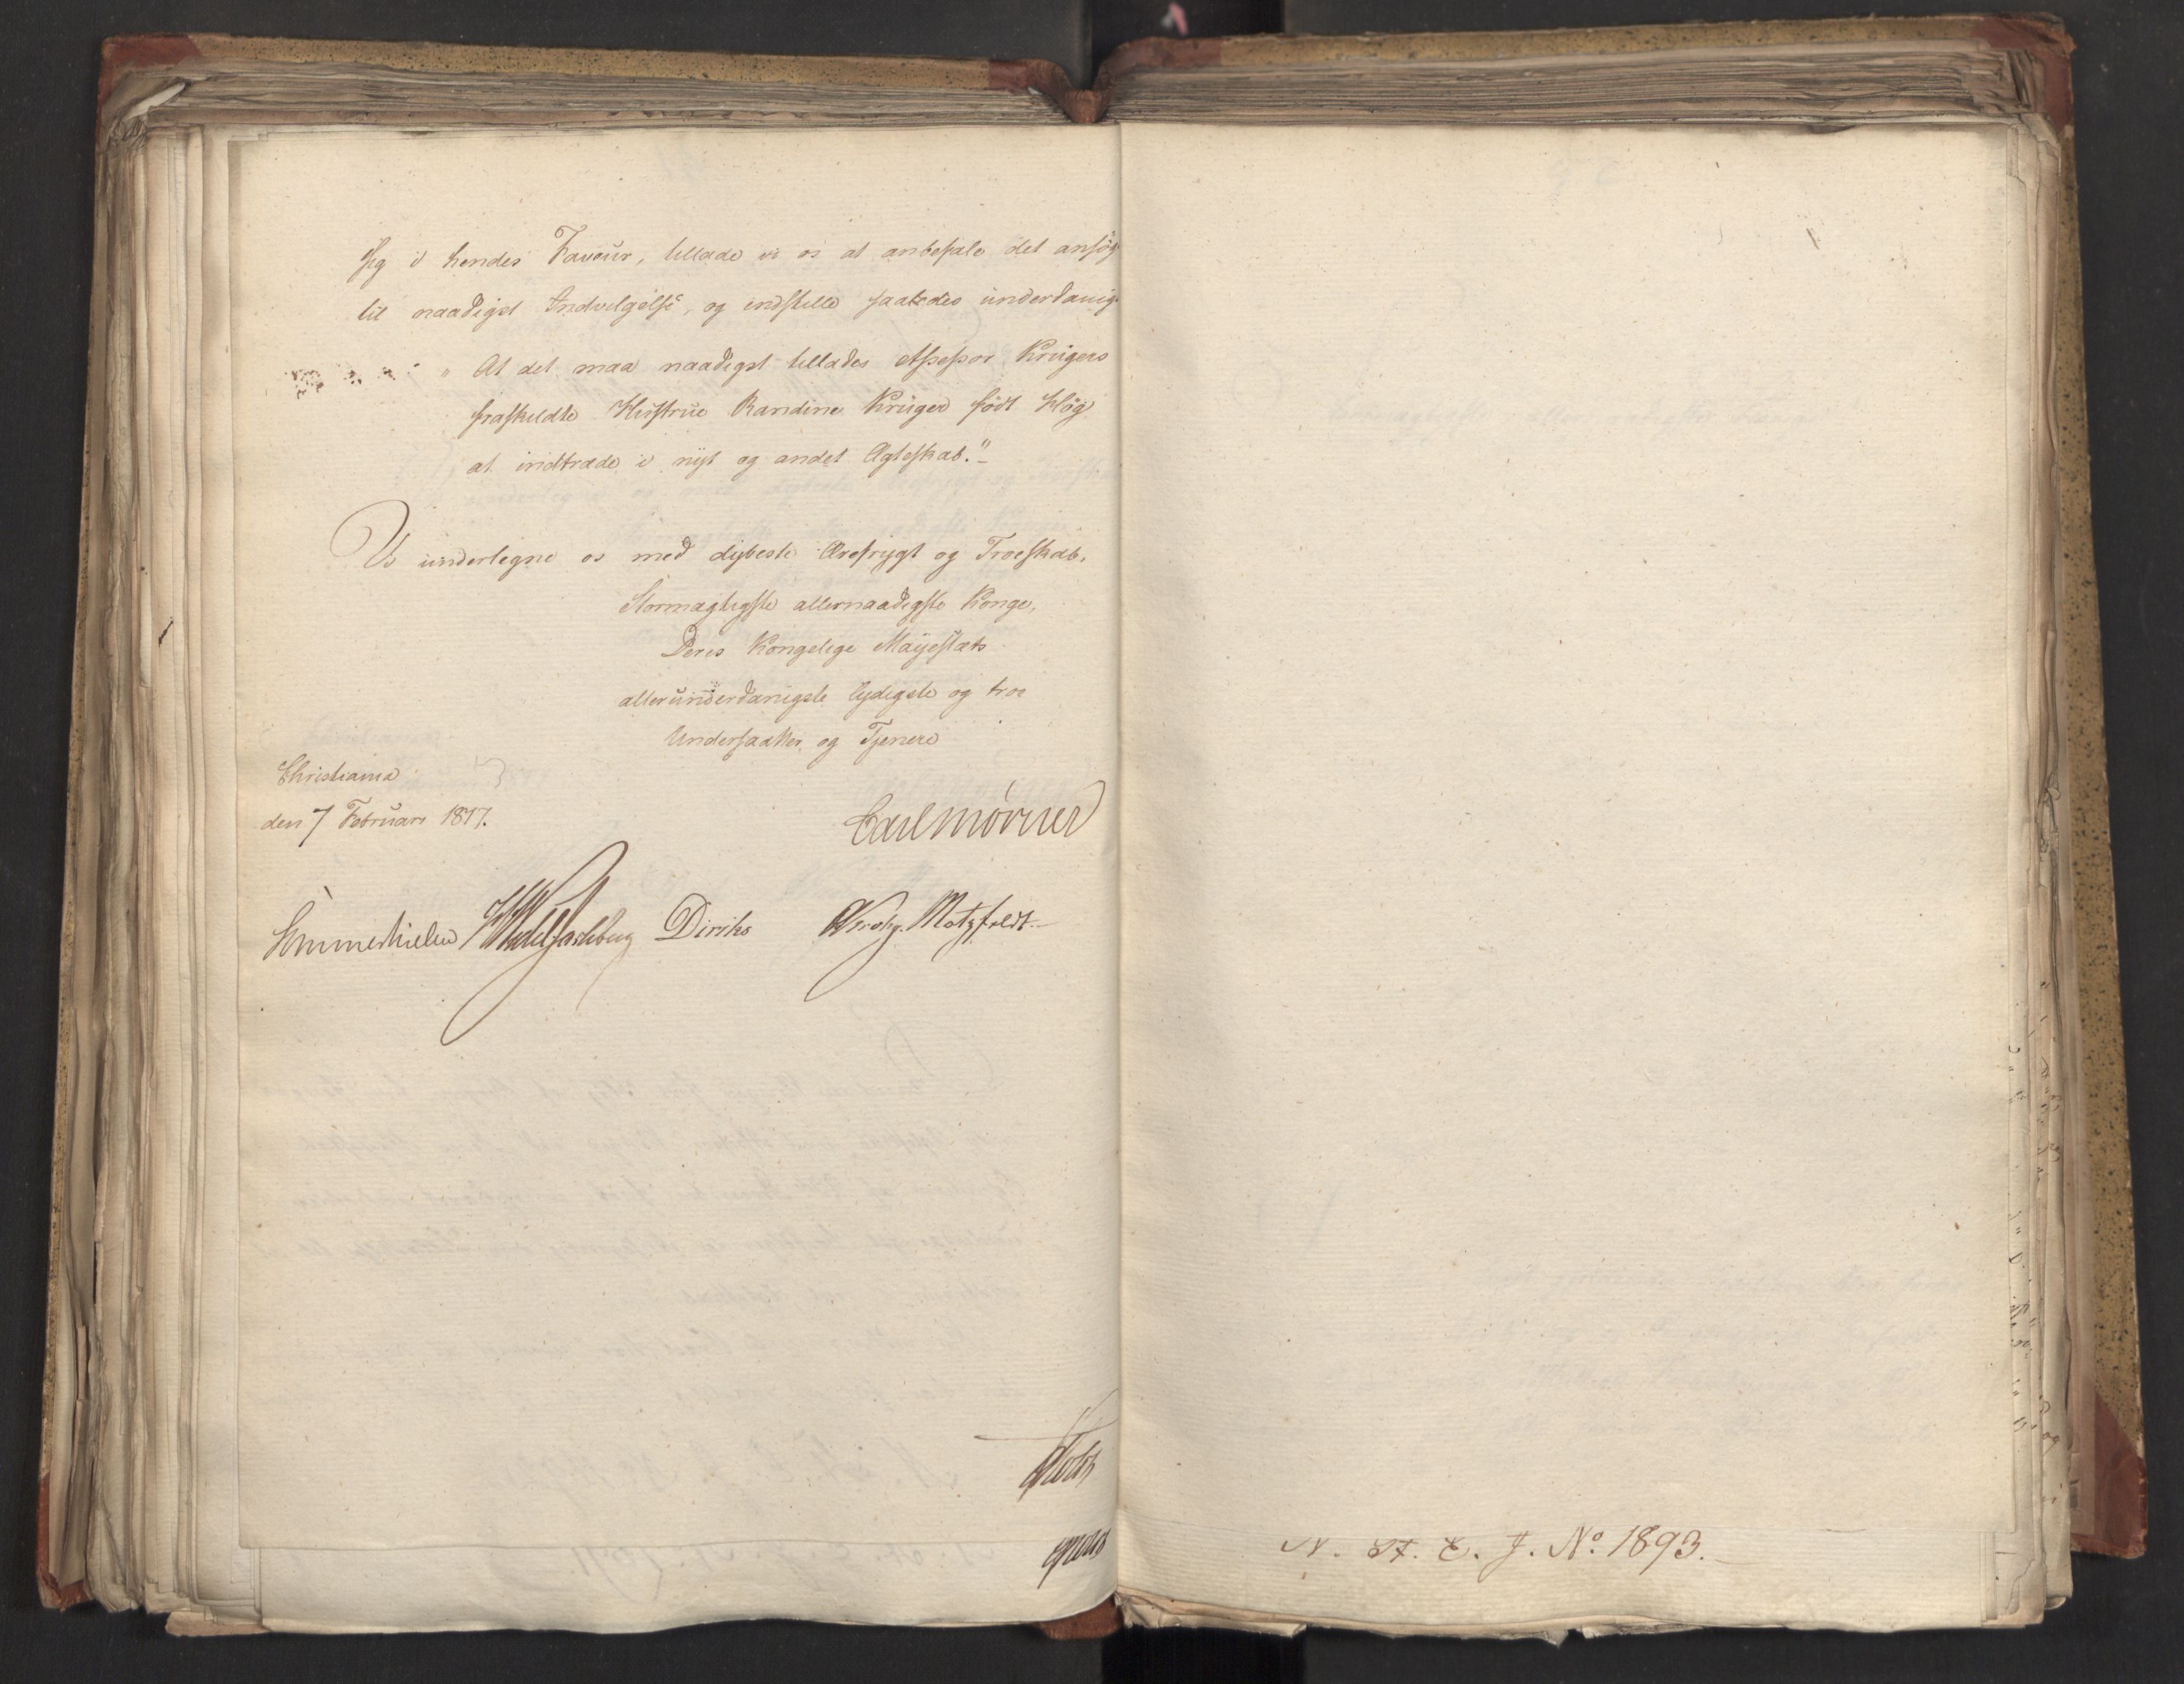 sig i hendes Faveur, tillade vi os at anbefale det ansøg
til naadigst Indvilgelse, og indstille saaledes underdanig
„ At det maa naadigst tillades Assessor Krügers
fraskildte Hustrue Randine Krüger født Høg
at indtræde i nyt og andet Ægteskab."
Vi underlegne os med dybeste Ærefrygt og Troeskab,
Stormægtigste allernaadigste Konge,
Deres Kongelige Mayestæts
allerunderdanigste lydigste og troe
Undersaatter og Tjenere
Christiania
den 7 Februar 1817.
Carl Mörner
Sommerhielm HWedelJarlsberg Diriks Motzfeldt
Holst
N. St. E. J. No. 1893.